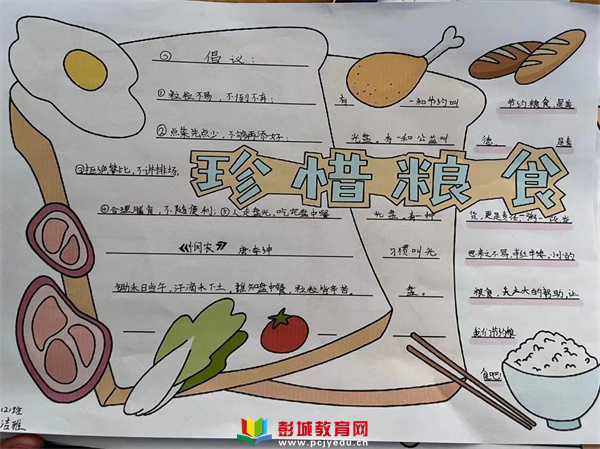 ☺ 倡议：
①粒粒不易，不倒不弃；
②点菜先点少，不够再添好；
③拒绝攀比，不讲排场；
珍惜粮食
④合理膳食，不随便剩；⑤人走盘光，吃光盘中餐
《悯农》 唐·李绅
锄禾日当午，汗滴禾下土，谁知盘中餐，粒粒皆辛苦。
有 一种节约叫
光盘，有一种公益叫
光盘，有一种
习惯叫光
盘。
节约粮食，是美
德，是责
任，更是
世来之不易，
粮食，去
我们节约粮
食吧！
(2)班
彭城教育网
www.pcjyedu.cn